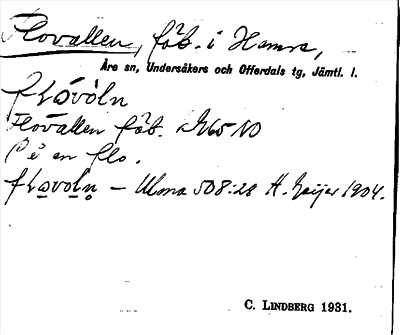 Flovallen, fäb. i Hamre,
Åre sn, Undersåkers och Offerdals tg, Jämtl. l.
fLövòln
Flovallen fäb. K65NO
på en flo.
fLo̱vo̱ln̥ – Ulma 508:28 H. Geijer 1904.
C. LINDBERG 1931.